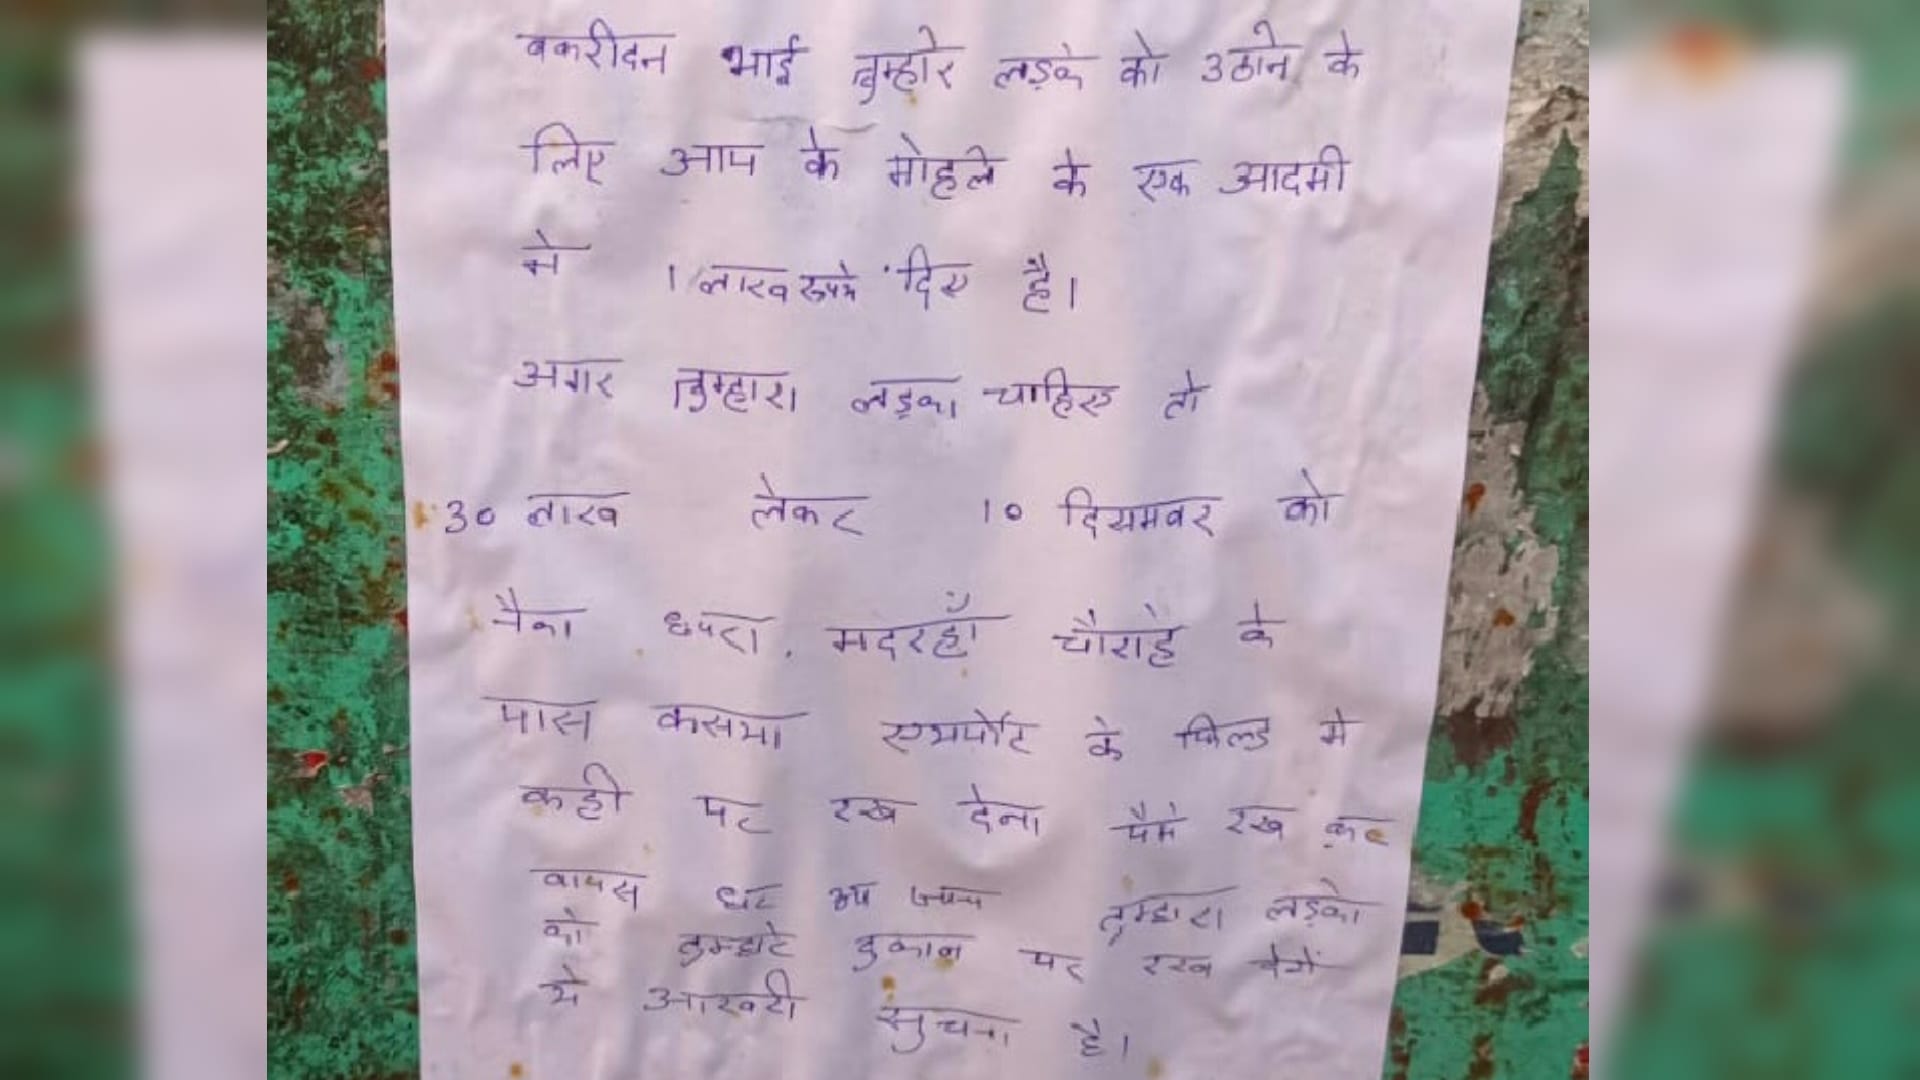 बकरीदन भाई तुम्हारे लड़के को उठाने के
लिए आप के मोहले के एक आदमी
ने 1 लाख रूपये दिए है।
अगर तुम्हारा लड़का चाहिए तो
30 लाख लेकर 10 दिसमबर को
नैका छपरा. मदरहाँ चौराहे के
पास कसया एयरपोर्ट के फिल्ड मे
कही पर रख देना पैसे रख कर
वापस घर आ जाना तुम्हारा लड़का
को तुम्हारे दुकान पर रख देगें
ये आखरी सुचना है।